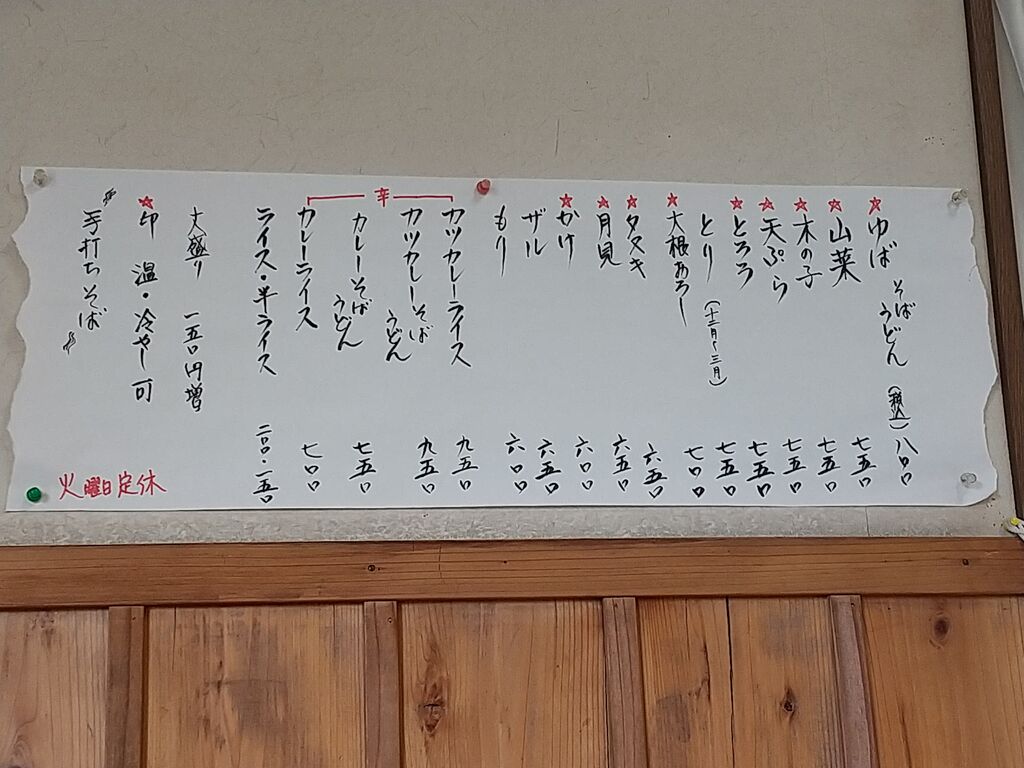 ☆ゆば そば うどん (税込) 八〇〇
☆山菜 七五〇
☆木の子 七五〇
☆天ぷら 七五〇
☆とろろ 七五〇
とり (十二月〜三月) 七五〇
☆大根おろし 七〇〇
☆タヌキ 六五〇
☆月見 六五〇
☆かけ 六〇〇
ザル 六五〇
もり 六〇〇
辛
カツカレーライス 九五〇
カツカレーそば うどん 九五〇
カレーそば うどん 七五〇
カレーライス 七〇〇
ライス・半ライス 二〇〇・一五〇
大盛り 一五〇円増
☆印 温・冷やし可
手打ちそば
火曜日定休